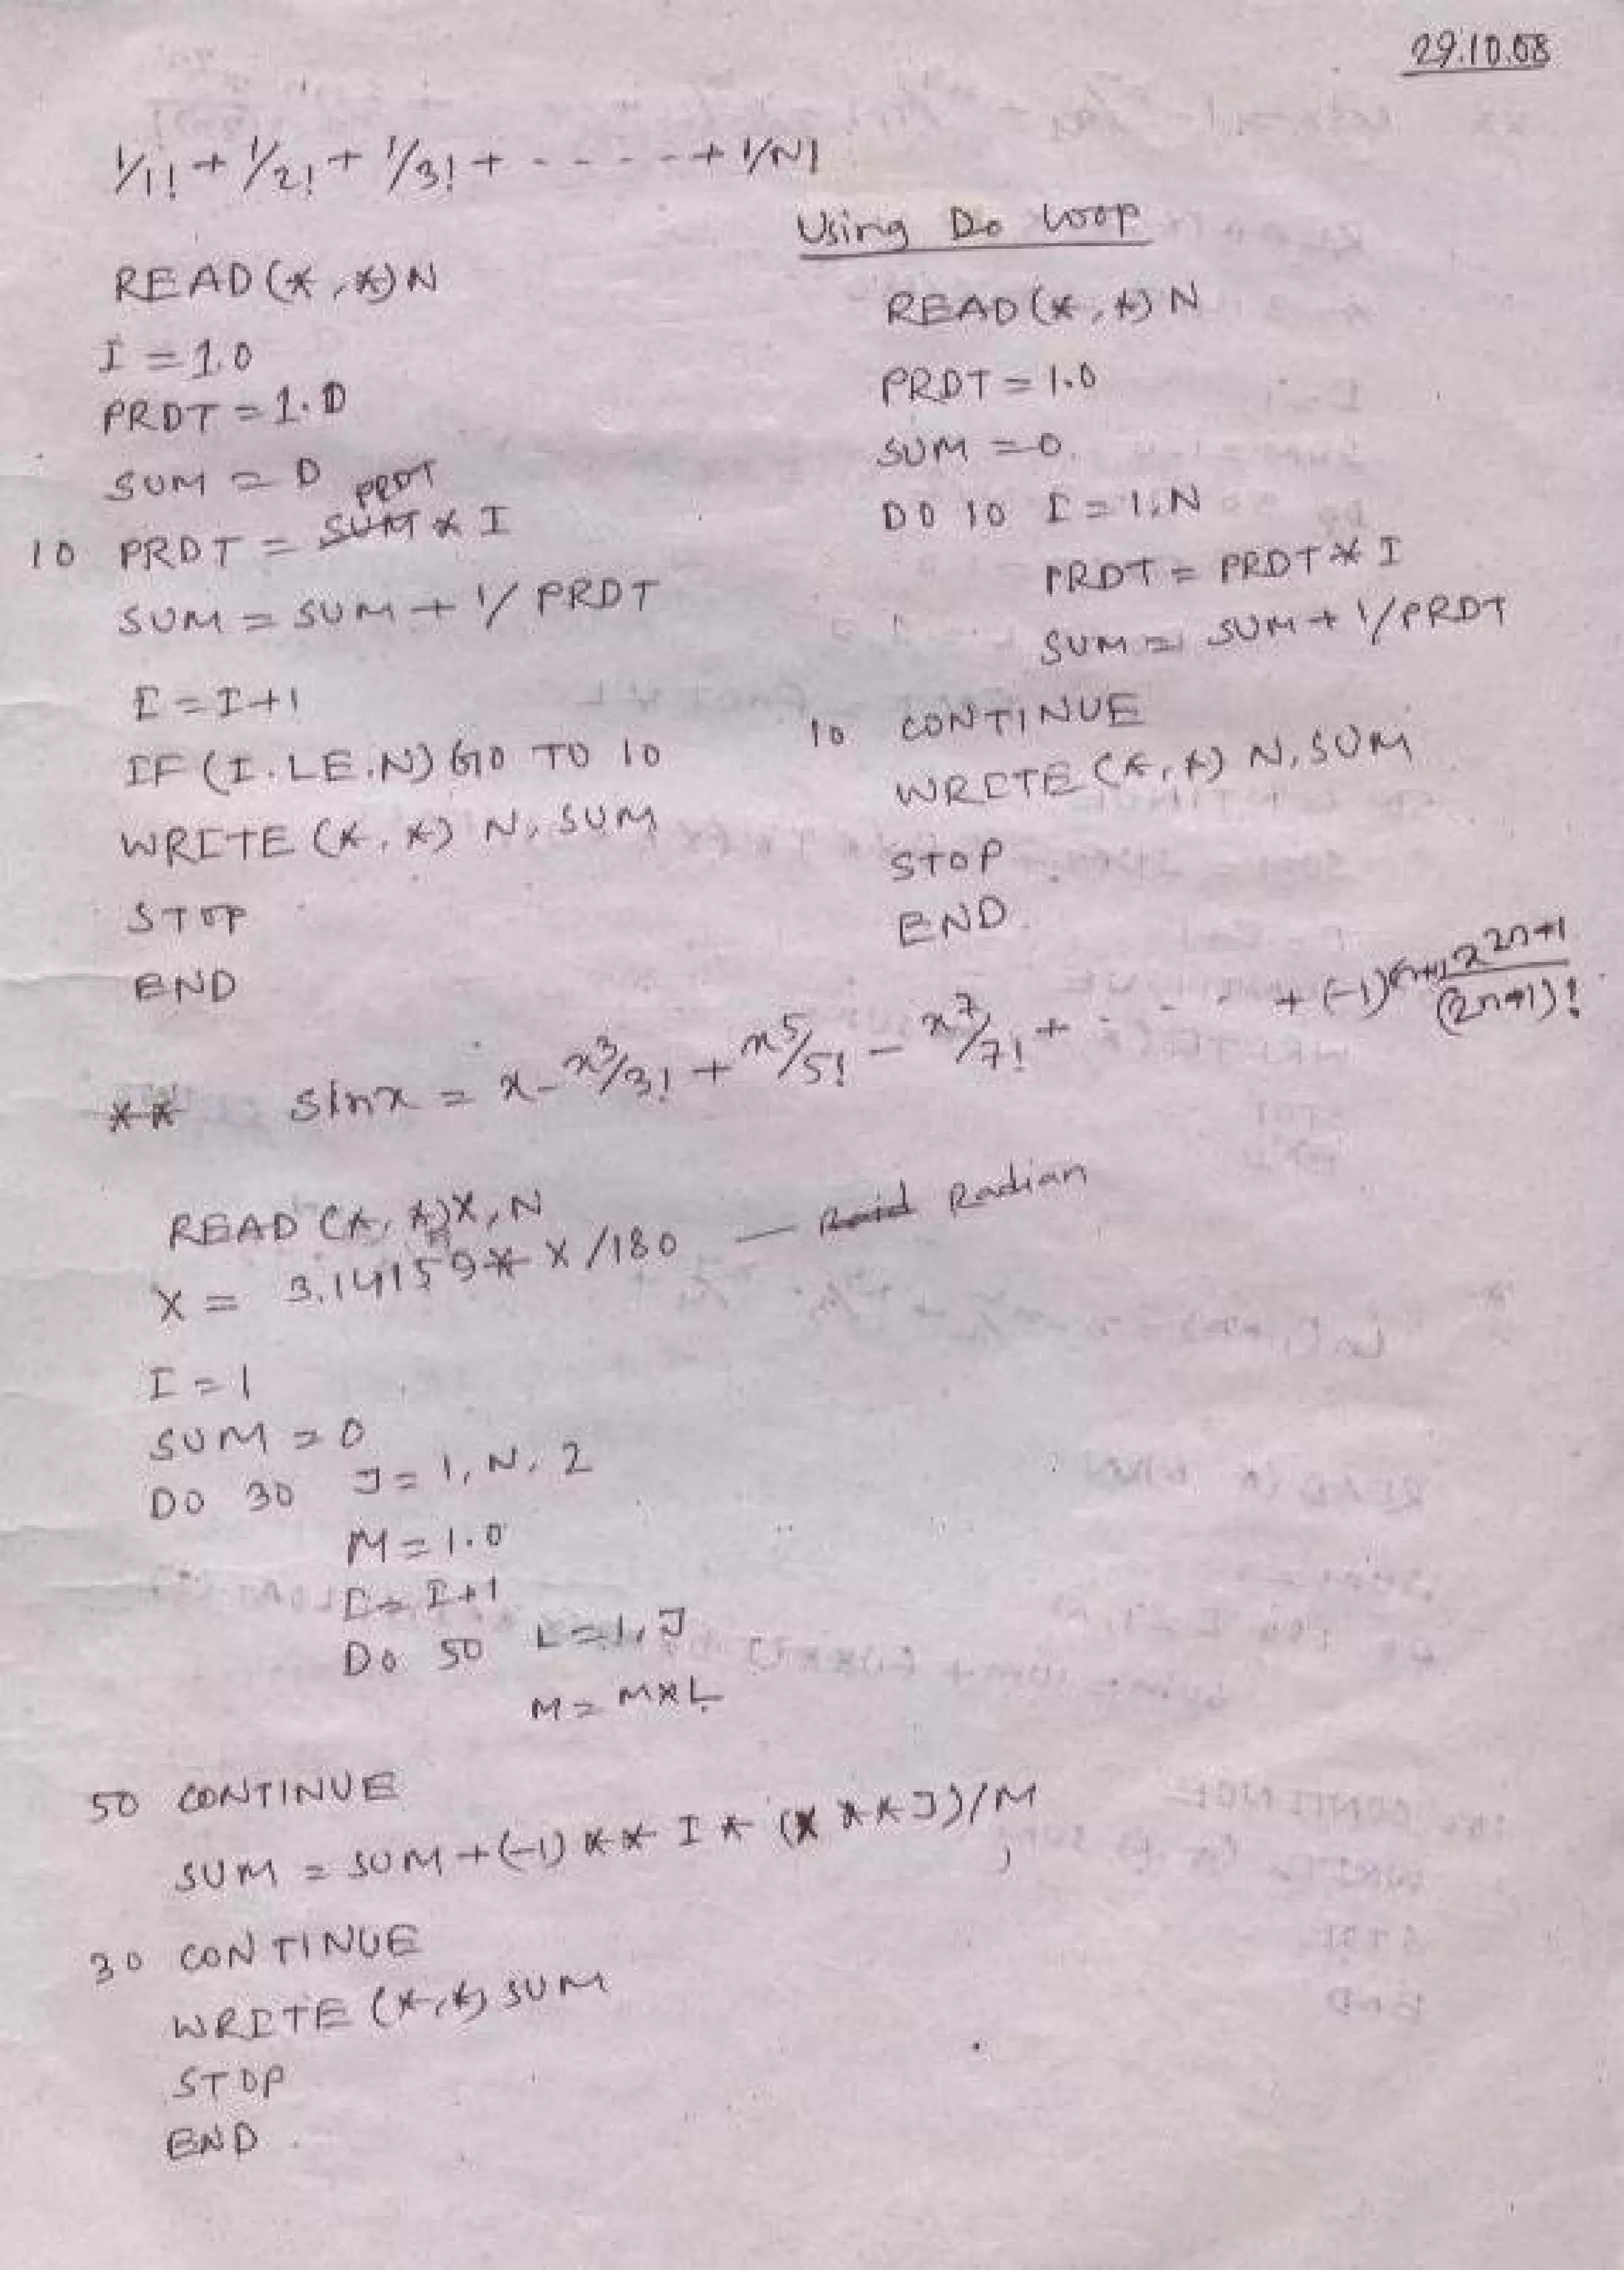 29.10.08
1/1! + 1/2! + 1/3! + - - - - - + 1/N!
READ(*,*)N
I = 1.0
PRDT = 1.0
SUM = 0
PRDT
10 PRDT = SUM * I
SUM = SUM + 1/PRDT
I = I+1
IF (I.LE.N) GO TO 10
WRITE (*,*) N, SUM
STOP
END
Using Do loop
READ(*,*) N
PRDT = 1.0
SUM = 0.
DO 10 I = 1,N
PRDT = PRDT * I
SUM = SUM + 1/PRDT
10 CONTINUE
WRITE (*,*) N, SUM
STOP
END
** sinx = x - x³/3! + x⁵/5! - x⁷/7! + - - - + (-1)ⁿ⁺¹ x²ⁿ⁺¹/(2n+1)!
READ (*,*)X,N
X = 3.14159 * X /180 — Radian
I = 1
SUM = 0
DO 30 J = 1, N, 2
M = 1.0
I = I+1
DO 50 L = 1, J
M = M*L
50 CONTINUE
SUM = SUM + (-1) ** I * (X ** J)/M
30 CONTINUE
WRITE (*,*) SUM
STOP
END